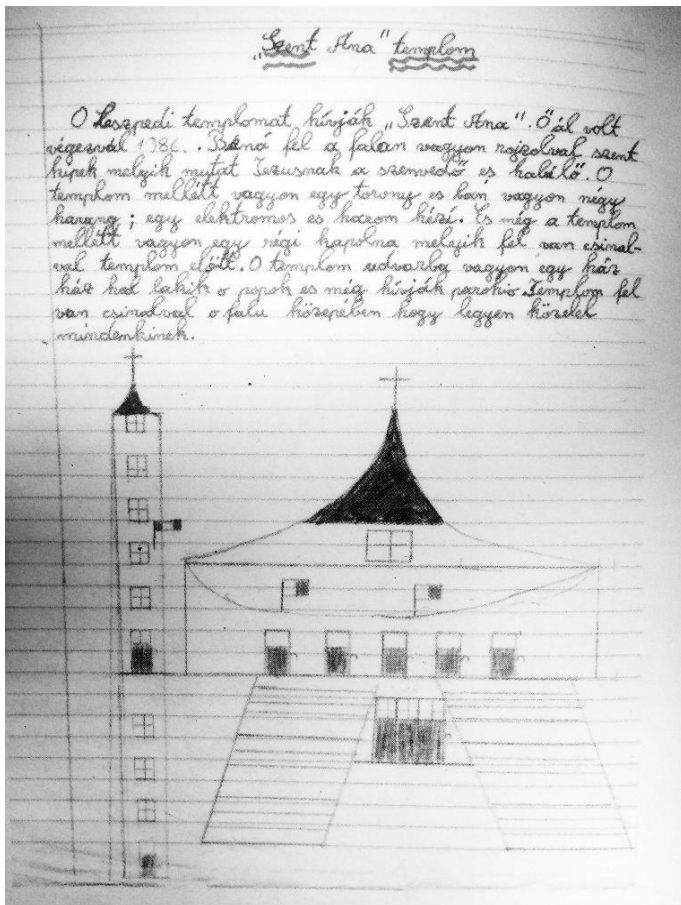 „Szent Ana" templom
O Leszpedi templomat hívják „Szent Ana". Ő ál volt
végezvál 1986. . Béná fel a falan vagyon rajzolval szent
kipek melyik mutat Jezusnak a szenvedő es halálő. O
templom mellétt vagyon egy torony es bán vagyon négy
harang; egy elektromos es harom kézi. Es még a templom
mellétt vagyon egy régi kapolna melyik fel van csinal-
val templom előtt. O templom udvarba vagyon egy ház
ház hol lakik o popok es még hívják parokio. Templom fel
van csinalval o falu közepében hogy legyen közelel
mindenkinek.